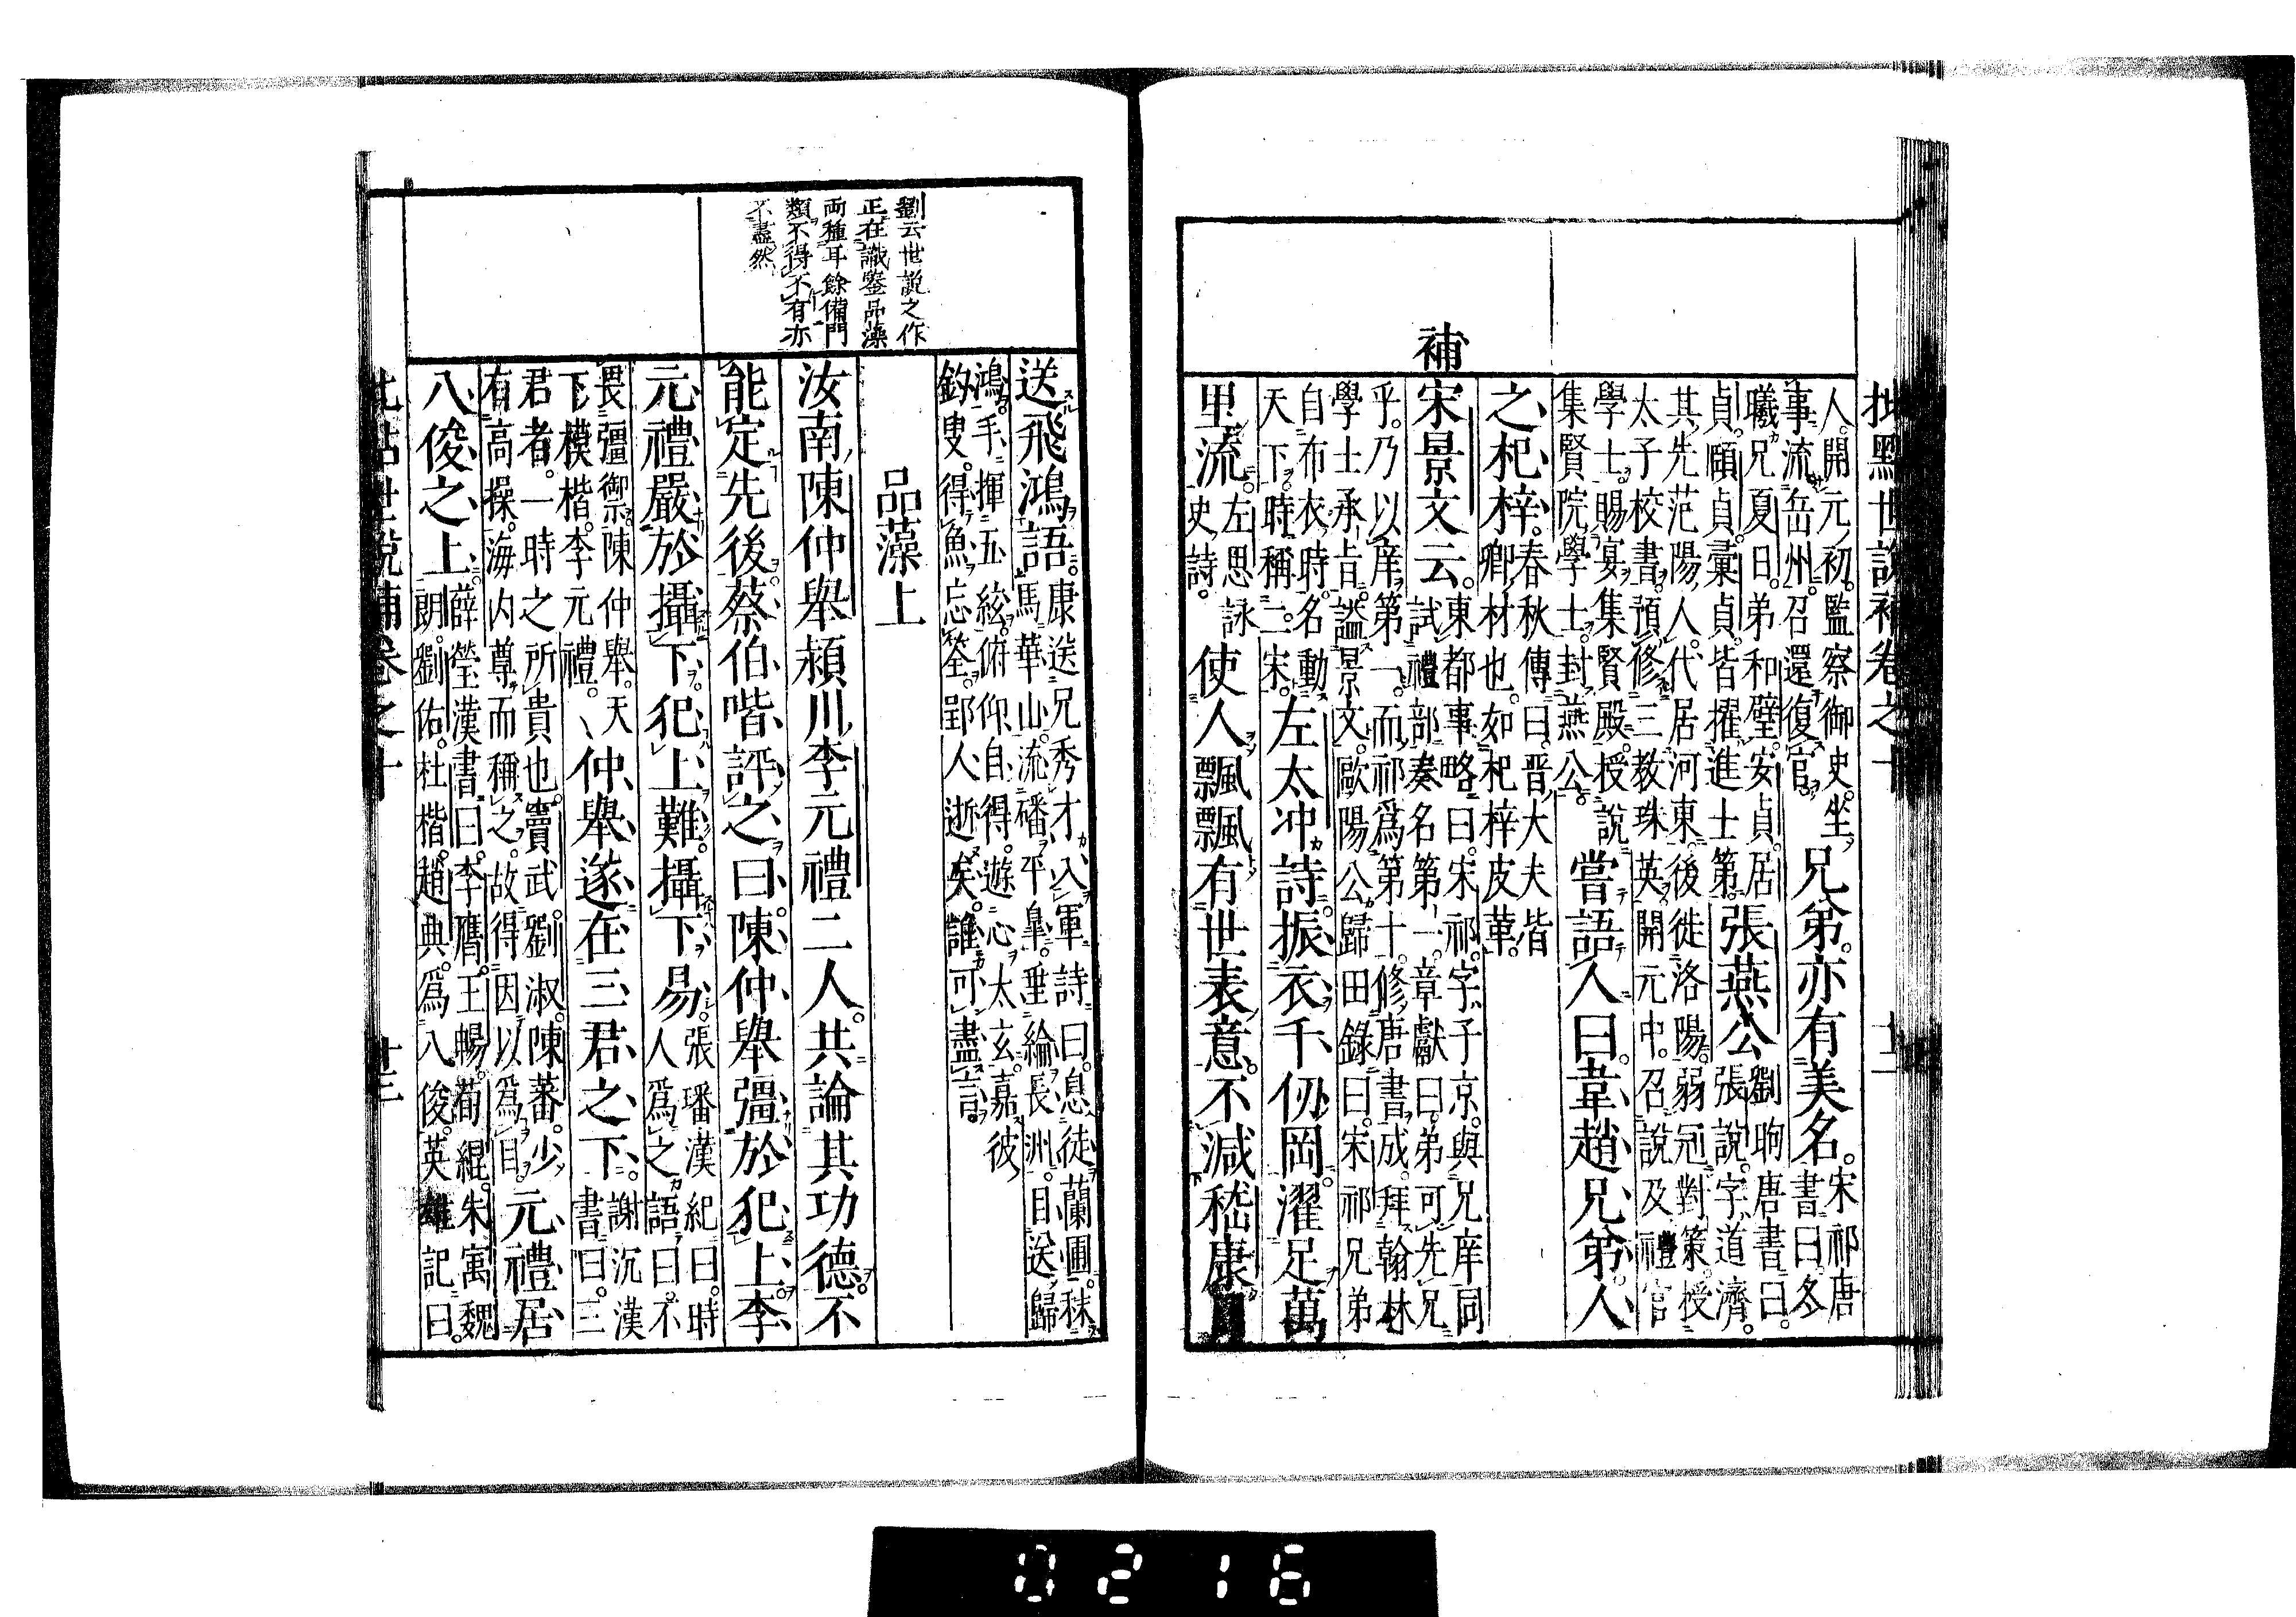 批點世說補卷之十
人。開元初。監察御史。坐
事流岳州。召還復官。
兄弟。亦有美名。
宋祁唐
書曰。冬
曦兄夏日。弟和璧。安貞。居
貞。頤貞。彙貞。皆擢進士第。
張燕公
劉昫唐書曰。
張說。字道濟。
其先范陽人。代居河東。後徙洛陽。弱冠對策。授
太子校書。預修三教珠英。開元中。召說及禮官
學士。賜宴集賢殿。授說
集賢院學士。封燕公。
嘗語人曰。韋趙兄弟。人
之杞梓。
春秋傳曰。晉大夫皆
卿材也。如杞梓皮革。
補
宋景文云。
東都事略曰。宋祁。字子京。與兄庠同
試禮部。奏名第一。章獻曰。弟可先兄
乎。乃以庠第一。而祁爲第十。修唐書成。拜翰林
學士承旨。謚景文。歐陽公歸田錄曰。宋祁兄弟
自布衣時。名動
天下。時稱二宋。
左太冲詩。振衣千仞岡。濯足萬
里流。
左思詠
史詩。
使人飄飄有世表意。不減嵇康目
送飛鴻語。
康送兄秀才入軍詩曰。息徒蘭圃。秣
馬華山。流磻平臯。垂綸長洲。目送歸
鴻。手揮五絃。俯仰自得。遊心太玄。嘉彼
釣叟。得魚忘筌。郢人逝矣。誰可盡言。
品藻上
劉云世說之作
正在識鑒品藻
両種耳餘備門
類不得不有亦
不盡然
汝南陳仲舉。潁川李元禮二人。共論其功德。不
能定先後。蔡伯喈評之曰。陳仲舉彊於犯上。李
元禮嚴於攝下。犯上難。攝下易。
張璠漢紀曰。時
人爲之語曰。不
畏彊禦。陳仲舉。天
下模楷。李元禮。
仲舉遂在三君之下。
謝沉漢
書曰。三
君者。一時之所貴也。竇武。劉淑。陳蕃。少
有高操。海內尊而稱之。故得因以爲目。
元禮居
八俊之上。
薛瑩漢書曰。李膺。王暢。荀緄。朱寓。魏
朗。劉佑。杜楷。趙典。爲八俊。英雄記曰。
0216